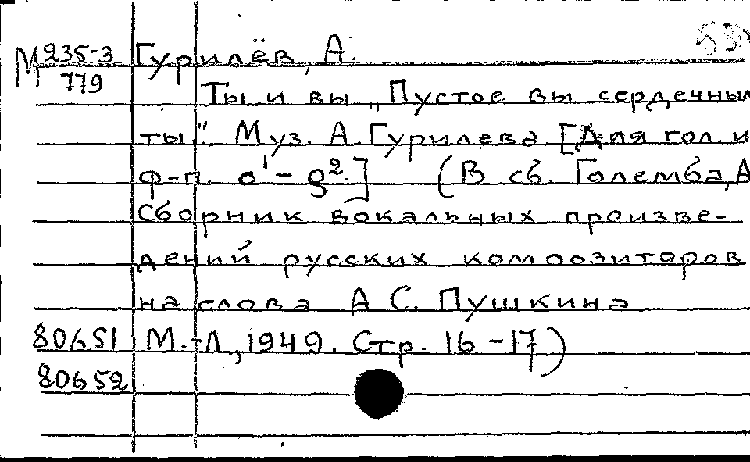 М 235-3 Гурилёв, А.
779
Ты и вы „Пустое вы сердечным
ты". Муз. А. Гурилева [Для гол и
ф-п. d¹ - g².] (В сб. Големба, А
Сборник вокальных произве-
дений русских композиторов
на слова А С. Пушкина
80651 М.-Л., 1949. Стр. 16-17)
80652